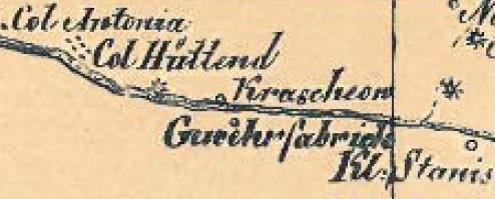 Col Antonia
Col Hüttend
Krascheow
Gewehrfabrick
Kl. Stanis